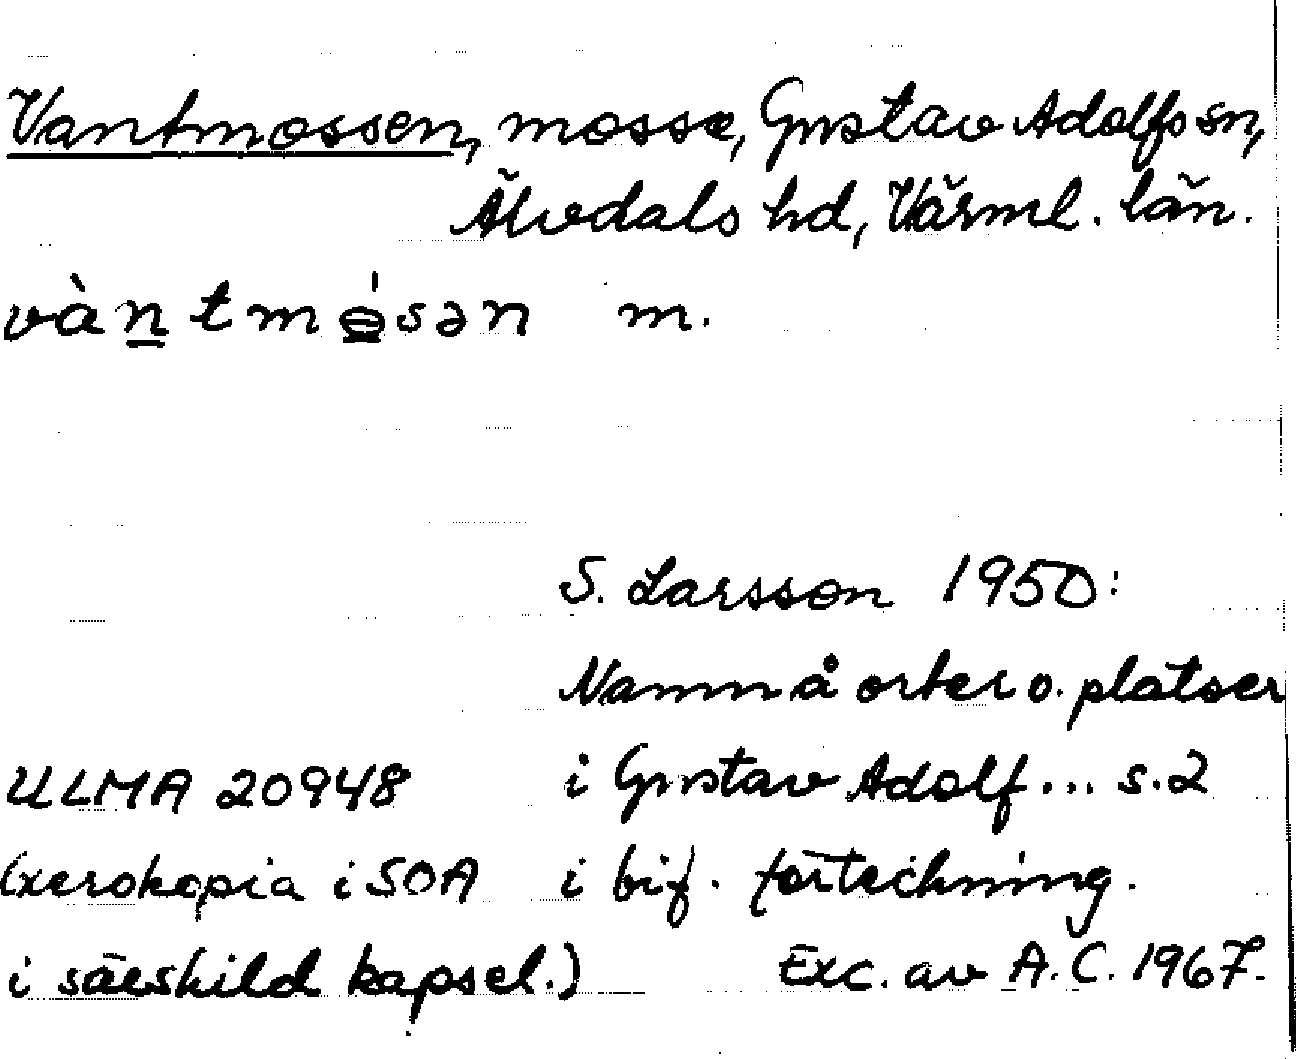 Vantmossen, mosse, Gustav Adolfs sn,
Älvdals hd, Värml. län.
vàn̲tmɵ̲́sən m.
S. Larsson 1950:
Namn å orter o. platser
ULMA 20948 i Gustav Adolf... s.2
(xerokopia i SOA i bif. förteckning.
i särskild kapsel.) Exc. av A.C. 1967.